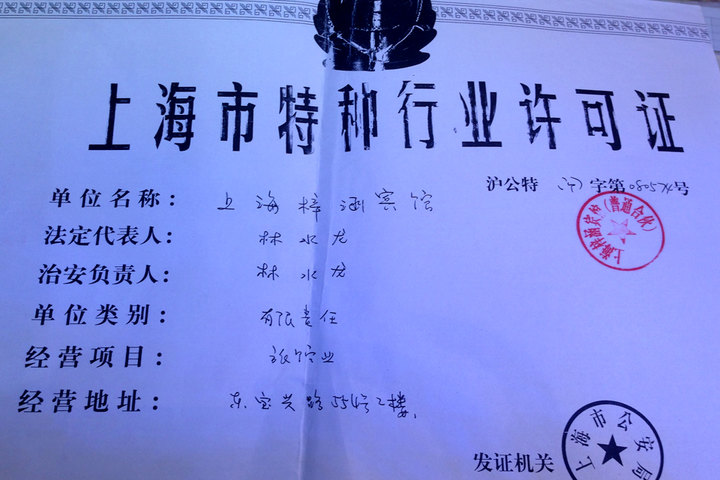 上海市特种行业许可证
沪公特 字第080524号
单位名称： 上海梓涵宾馆
上海梓涵宾馆（普通合伙）
法定代表人： 林水龙
治安负责人： 林水龙
单位类别： 有限责任
经营项目： 旅馆业
经营地址： 东宝兴路554号2楼
发证机关
上海市公安局